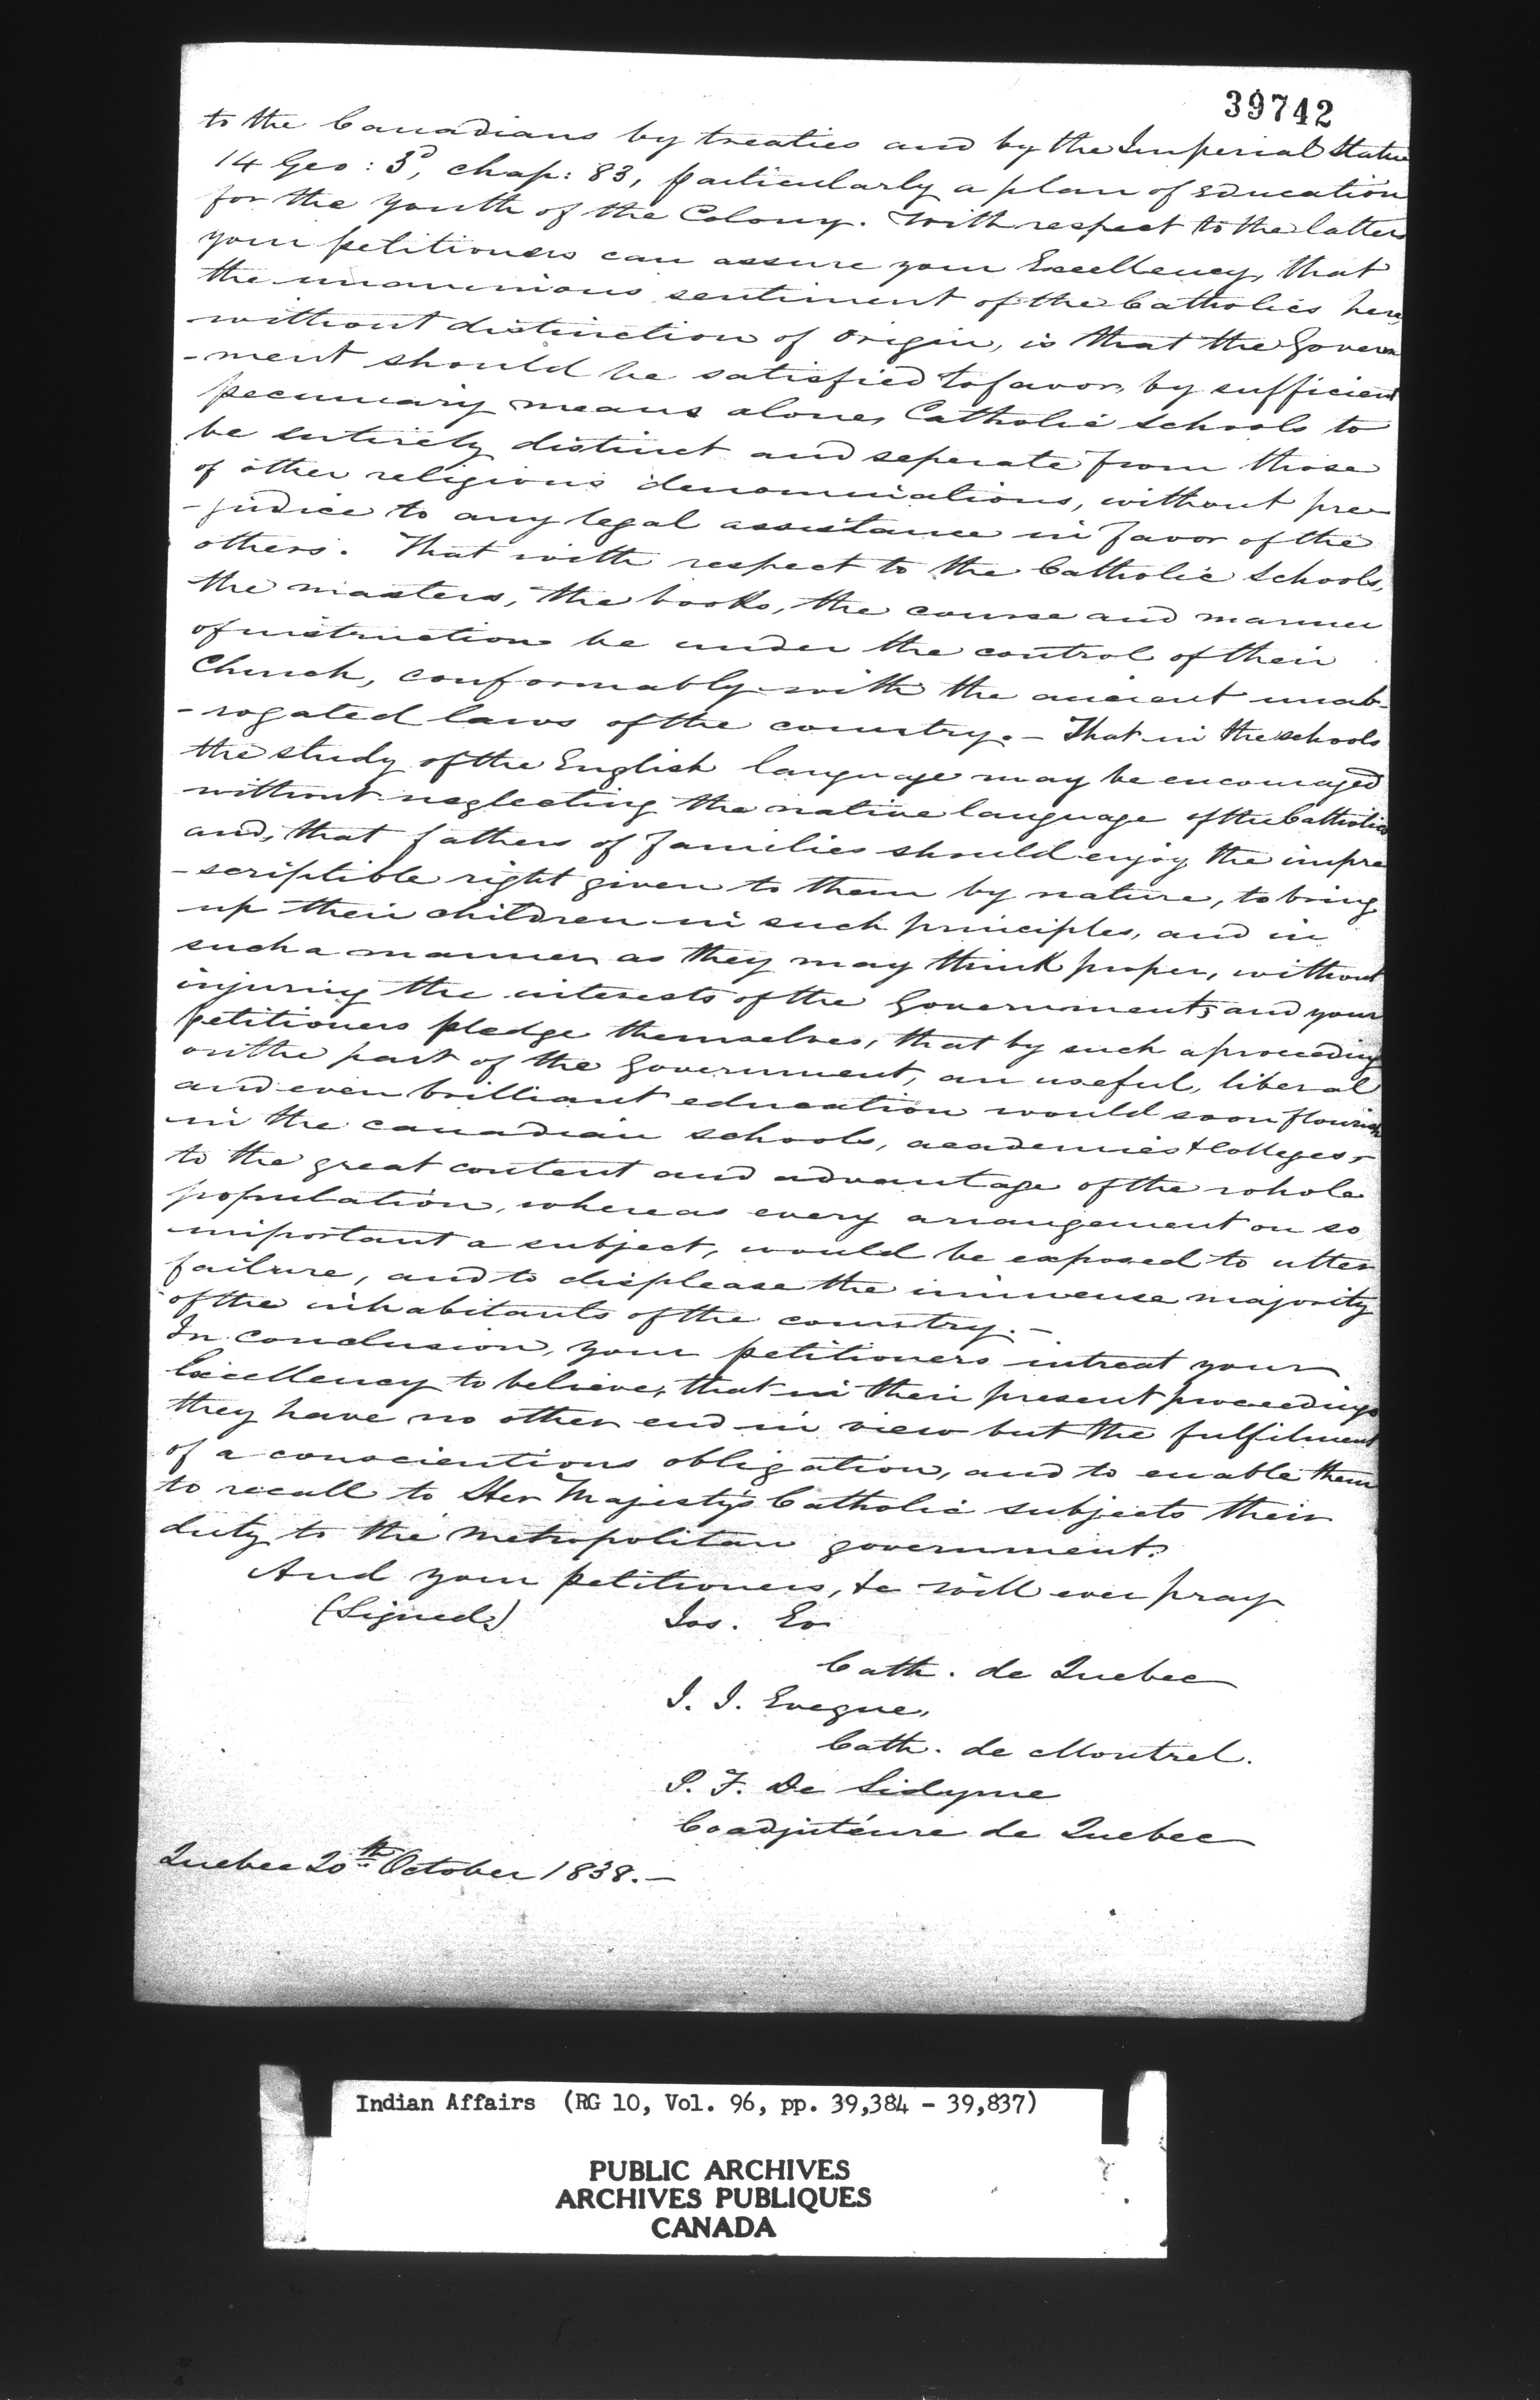 39742
to the Canadians by treaties and by the Imperial Statue
14 Geo: 3d, chap: 83, particularly a plan of Education
for the youth of the Colony. With respect to the latter
your petitioners can assure your Excellency, that
the unanimous sentiment of the Catholics here,
without distinction of origin, is that the Govern
-ment should be satisfied to favor, by sufficient
pecuniary means alone, Catholic Schools to
be entirely distinct and seperate from those
of other religious denominations, without pre-
-judice to any legal assistance in favor of the
others. That with respect to the Catholic Schools,
the masters, the books, the course and manner
of instruction be under the control of their
Church, conformably with the ancient unab-
-rogated laws of the country. - That in the schools
the study of the English language may be encouraged
without neglecting the native language of the Catholics
and, that fathers of families should enjoy the impre
-scriptible right given to them by nature, to bring
up their children in such principles, and in
such a manner as they may think proper, without
injuring the interests of the Government; and your
petitioners pledge themselves, that by such a proceeding
on the part of the Government, an useful, liberal
and even brilliant education would soon flourish
in the canadian schools, academies & Colleges,
to the great content and advantage of the whole
population, whereas every arrangement on so
important a subject, would be exposed to utter
failure, and to displease the immense majority
of the inhabitants of the country. -
In conclusion, your petitioners intreat your
Excellency to believe, that in their present proceedings
they have no other end in view but the fulfilment
of a conscientious obligation, and to enable them
to recall to Her Majesty's Catholic subjects their
duty to the metropolitan government.
And your petitioners, &c will ever pray
(Signed)
Jos. Ev
Cath. de Quebec
J. J. Evegue,
Cath. de Montrel.
P. F. De Sidyme
Coadjutéure de Quebec
Quebec 20th October 1838. -
Indian Affairs (RG 10, Vol. 96, pp. 39,384 - 39,837)
PUBLIC ARCHIVES
ARCHIVES PUBLIQUES
CANADA